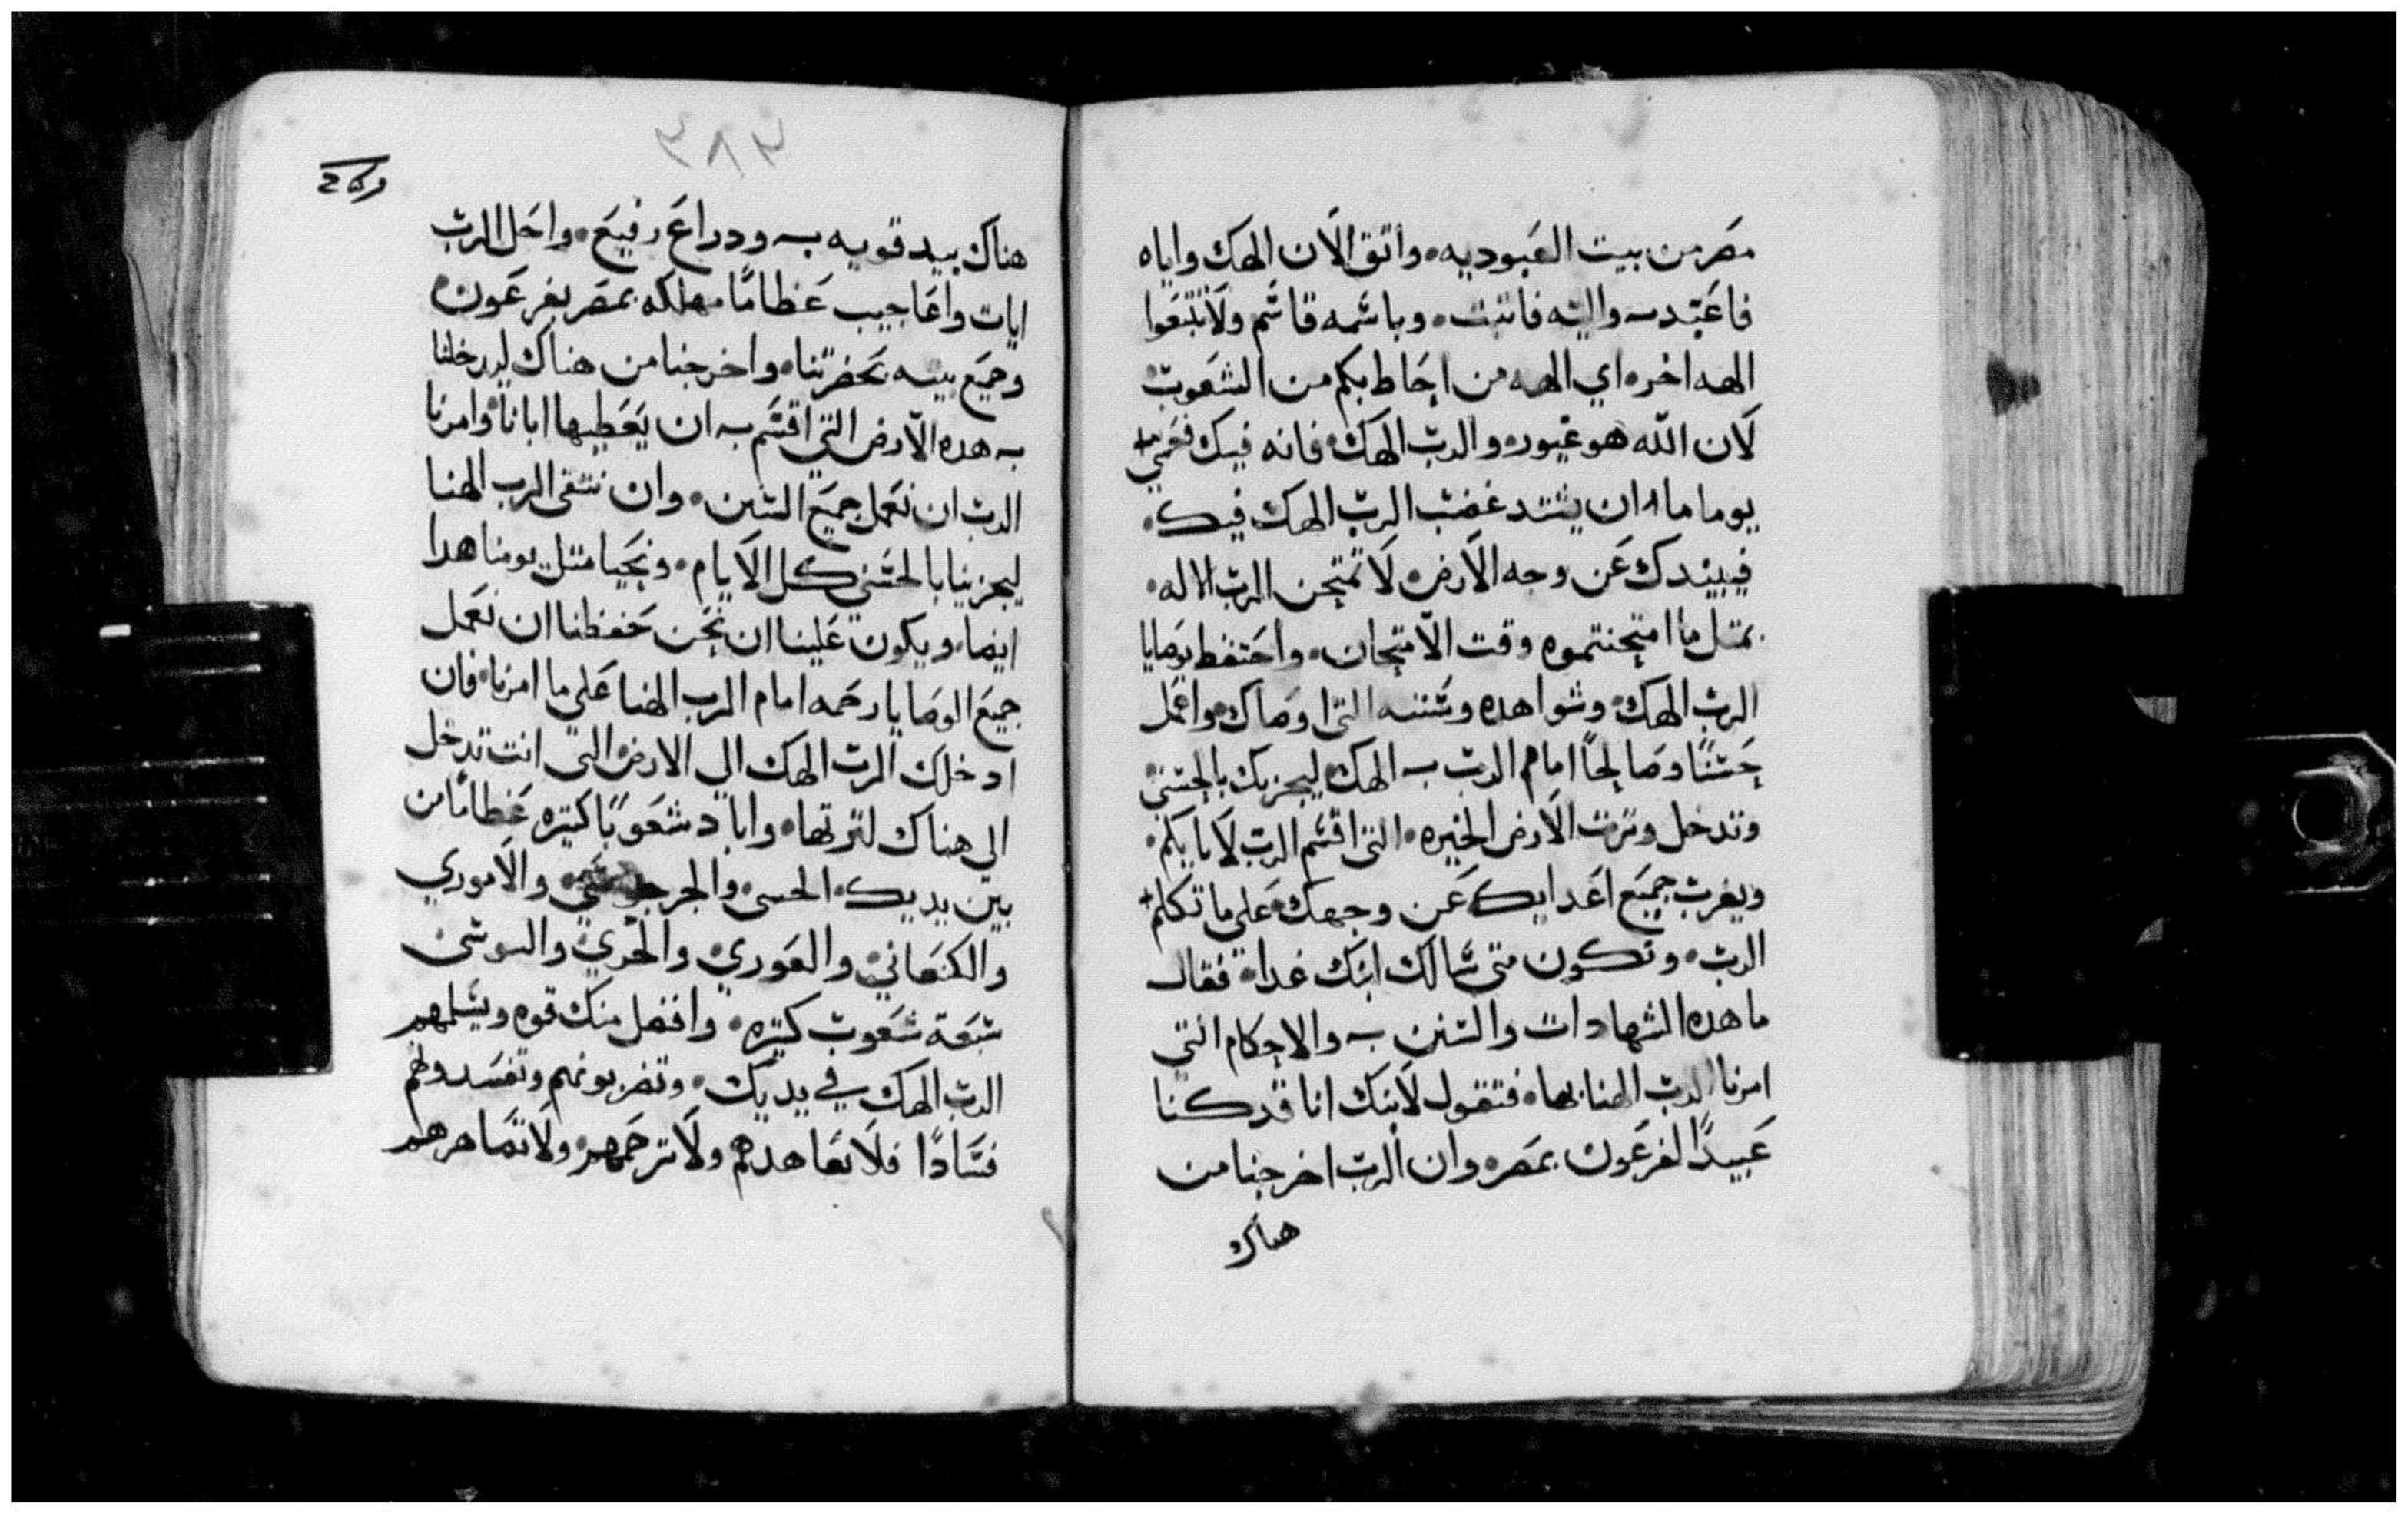 مصر من بيت العبوديه. واتق الان الهك واياه
فاعبد واليه فاثبت. وباسمه قاسم ولا تتبعوا
الهه اخر. اي الهه من احاط بكم من الشعوب
لان الله هو غيور. والرب الهك فانه فيك
يوما ما ان يشتد غضب الرب الهك فيك.
فيبيدك عن وجه الارض. لا تمتحن الرب الاله.
بمثل ما امتحنتموه وقت الامتحان. واحتفظ بوصايا
الرب الهك وشواهده وسننه التي اوصاك. واعمل
حسنًا وصالحًا امام الرب الهك ليجزيك بالحسني
وتدخل وترث الارض الخيره. التي اقسم الرب لابايكم.
ويضرب جميع اعدايك عن وجهك. علي ما تكلم
الرب. وتكون متي سالك ابنك غدا. فقال
ما هده الشهادات والسنن والاحكام التي
امرنا الرب الهنا بها. فتقول لابنك انا قد كنا
عبيدًا لفرعون بمصر. وان الرب اخرجنا من
هناك
٣٨٤
هناك بيد قويه ودراع رفيع. واحل الرب
ايات واعاجيب عظامًا مهلكه بمصر بفرعون.
وجميع بيته بحضرتنا. واخرجنا من هناك ليدخلنا
هده الارض التي اقسم ان يعطيها ابانا. وامرنا
الرب ان نعمل جميع السنن. وان نتقي الرب الهنا
ليجزينا بالحسني كل الايام. ونحيا مثل يومنا هدا
ايضا. ويكون علينا ان نحن حفظنا ان نعمل
جميع الوصايا رحمه امام الرب الهنا علي ما امرنا. فان
ادخلك الرب الهك الي الارض التي انت تدخل
الي هناك لترثها. واباد شعوبًا كثيره عظامًا من
بين يديك. الحسي والجرجسي. والاموري
والكنعاني. والفوري والحوي واليوسي
سبعة شعوب كثيره. وافضل منك قوه ويسلمهم
الرب الهك في يديك. وتضربونهم وتفسدونهم
فسادًا فلا تعاهدهم ولا ترحمهم. ولا تصاهرهم